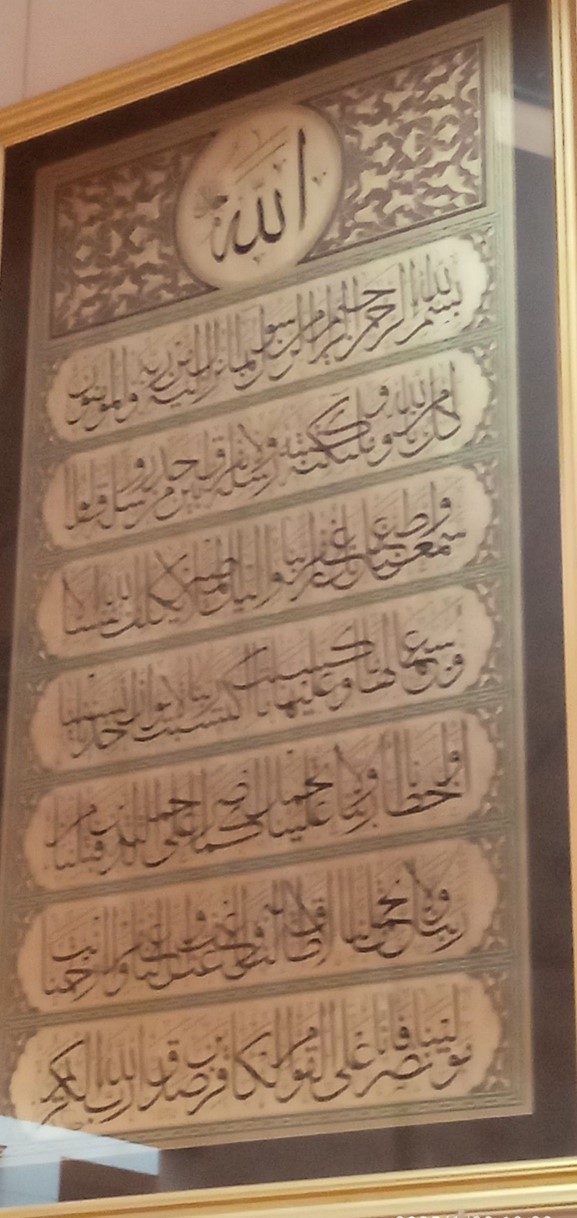 الله
بسم الله الرحمن الرحيم امن الرسول بما انزل اليه من ربه والمومنون
كل امن بالله وملائكته وكتبه ورسله لا نفرق بين احد من رسله وقالوا
سمعنا واطعنا غفرانك ربنا واليك المصير لا يكلف الله نفسا الا
وسعها لها ما كسبت وعليها ما اكتسبت ربنا لا تواخذنا ان نسينا
او اخطانا ربنا ولا تحمل علينا اصرا كما حملته على الذين من قبلنا
ربنا ولا تحملنا ما لا طاقة لنا به واعف عنا واغفر لنا وارحمنا انت
مولينا فانصرنا على القوم الكافرين صدق الله ربنا الكريم